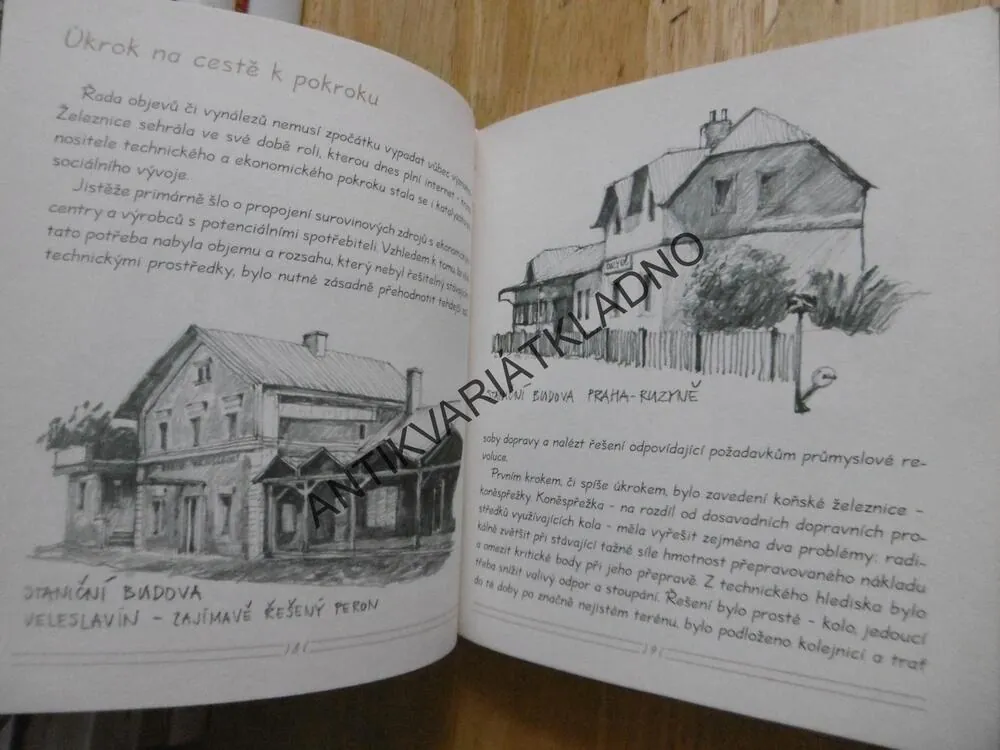 Úkrok na cestě k pokroku
Řada objevů či vynálezů nemusí zpočátku vypadat vůbec
Železnice sehrála ve své době roli, kterou dnes plní internet -
nositele technického a ekonomického pokroku stala se i
sociálního vývoje.
Jistěže primárně šlo o propojení surovinových zdrojů s
centry a výrobců s potenciálními spotřebiteli. Vzhledem k tomu,
tato potřeba nabyla objemu a rozsahu, který nebyl řešitelný
technickými prostředky, bylo nutné zásadně přehodnotit tehdejší
STANIČNÍ BUDOVA
VELESLAVÍN - ZAJÍMAVĚ ŘEŠENÝ PERON
8
RUZYNĚ
BUDOVA PRAHA-RUZYNĚ
soby dopravy a nalézt řešení odpovídající požadavkům průmyslové re-
voluce.
Prvním krokem, či spíše úkrokem, bylo zavedení koňské železnice -
koněspřežky. Koněspřežka - na rozdíl od dosavadních dopravních pro-
středků využívajících kola - měla vyřešit zejména dva problémy: radi-
kálně zvětšit při stávající tažné síle hmotnost přepravovaného nákladu
a omezit kritické body při jeho přepravě. Z technického hlediska bylo
třeba snížit valivý odpor a stoupání. Řešení bylo prosté - kolo, jedoucí
do té doby po značně nejistém terénu, bylo podloženo kolejnicí a trať
9
ANTIKVARIÁTKLADNO